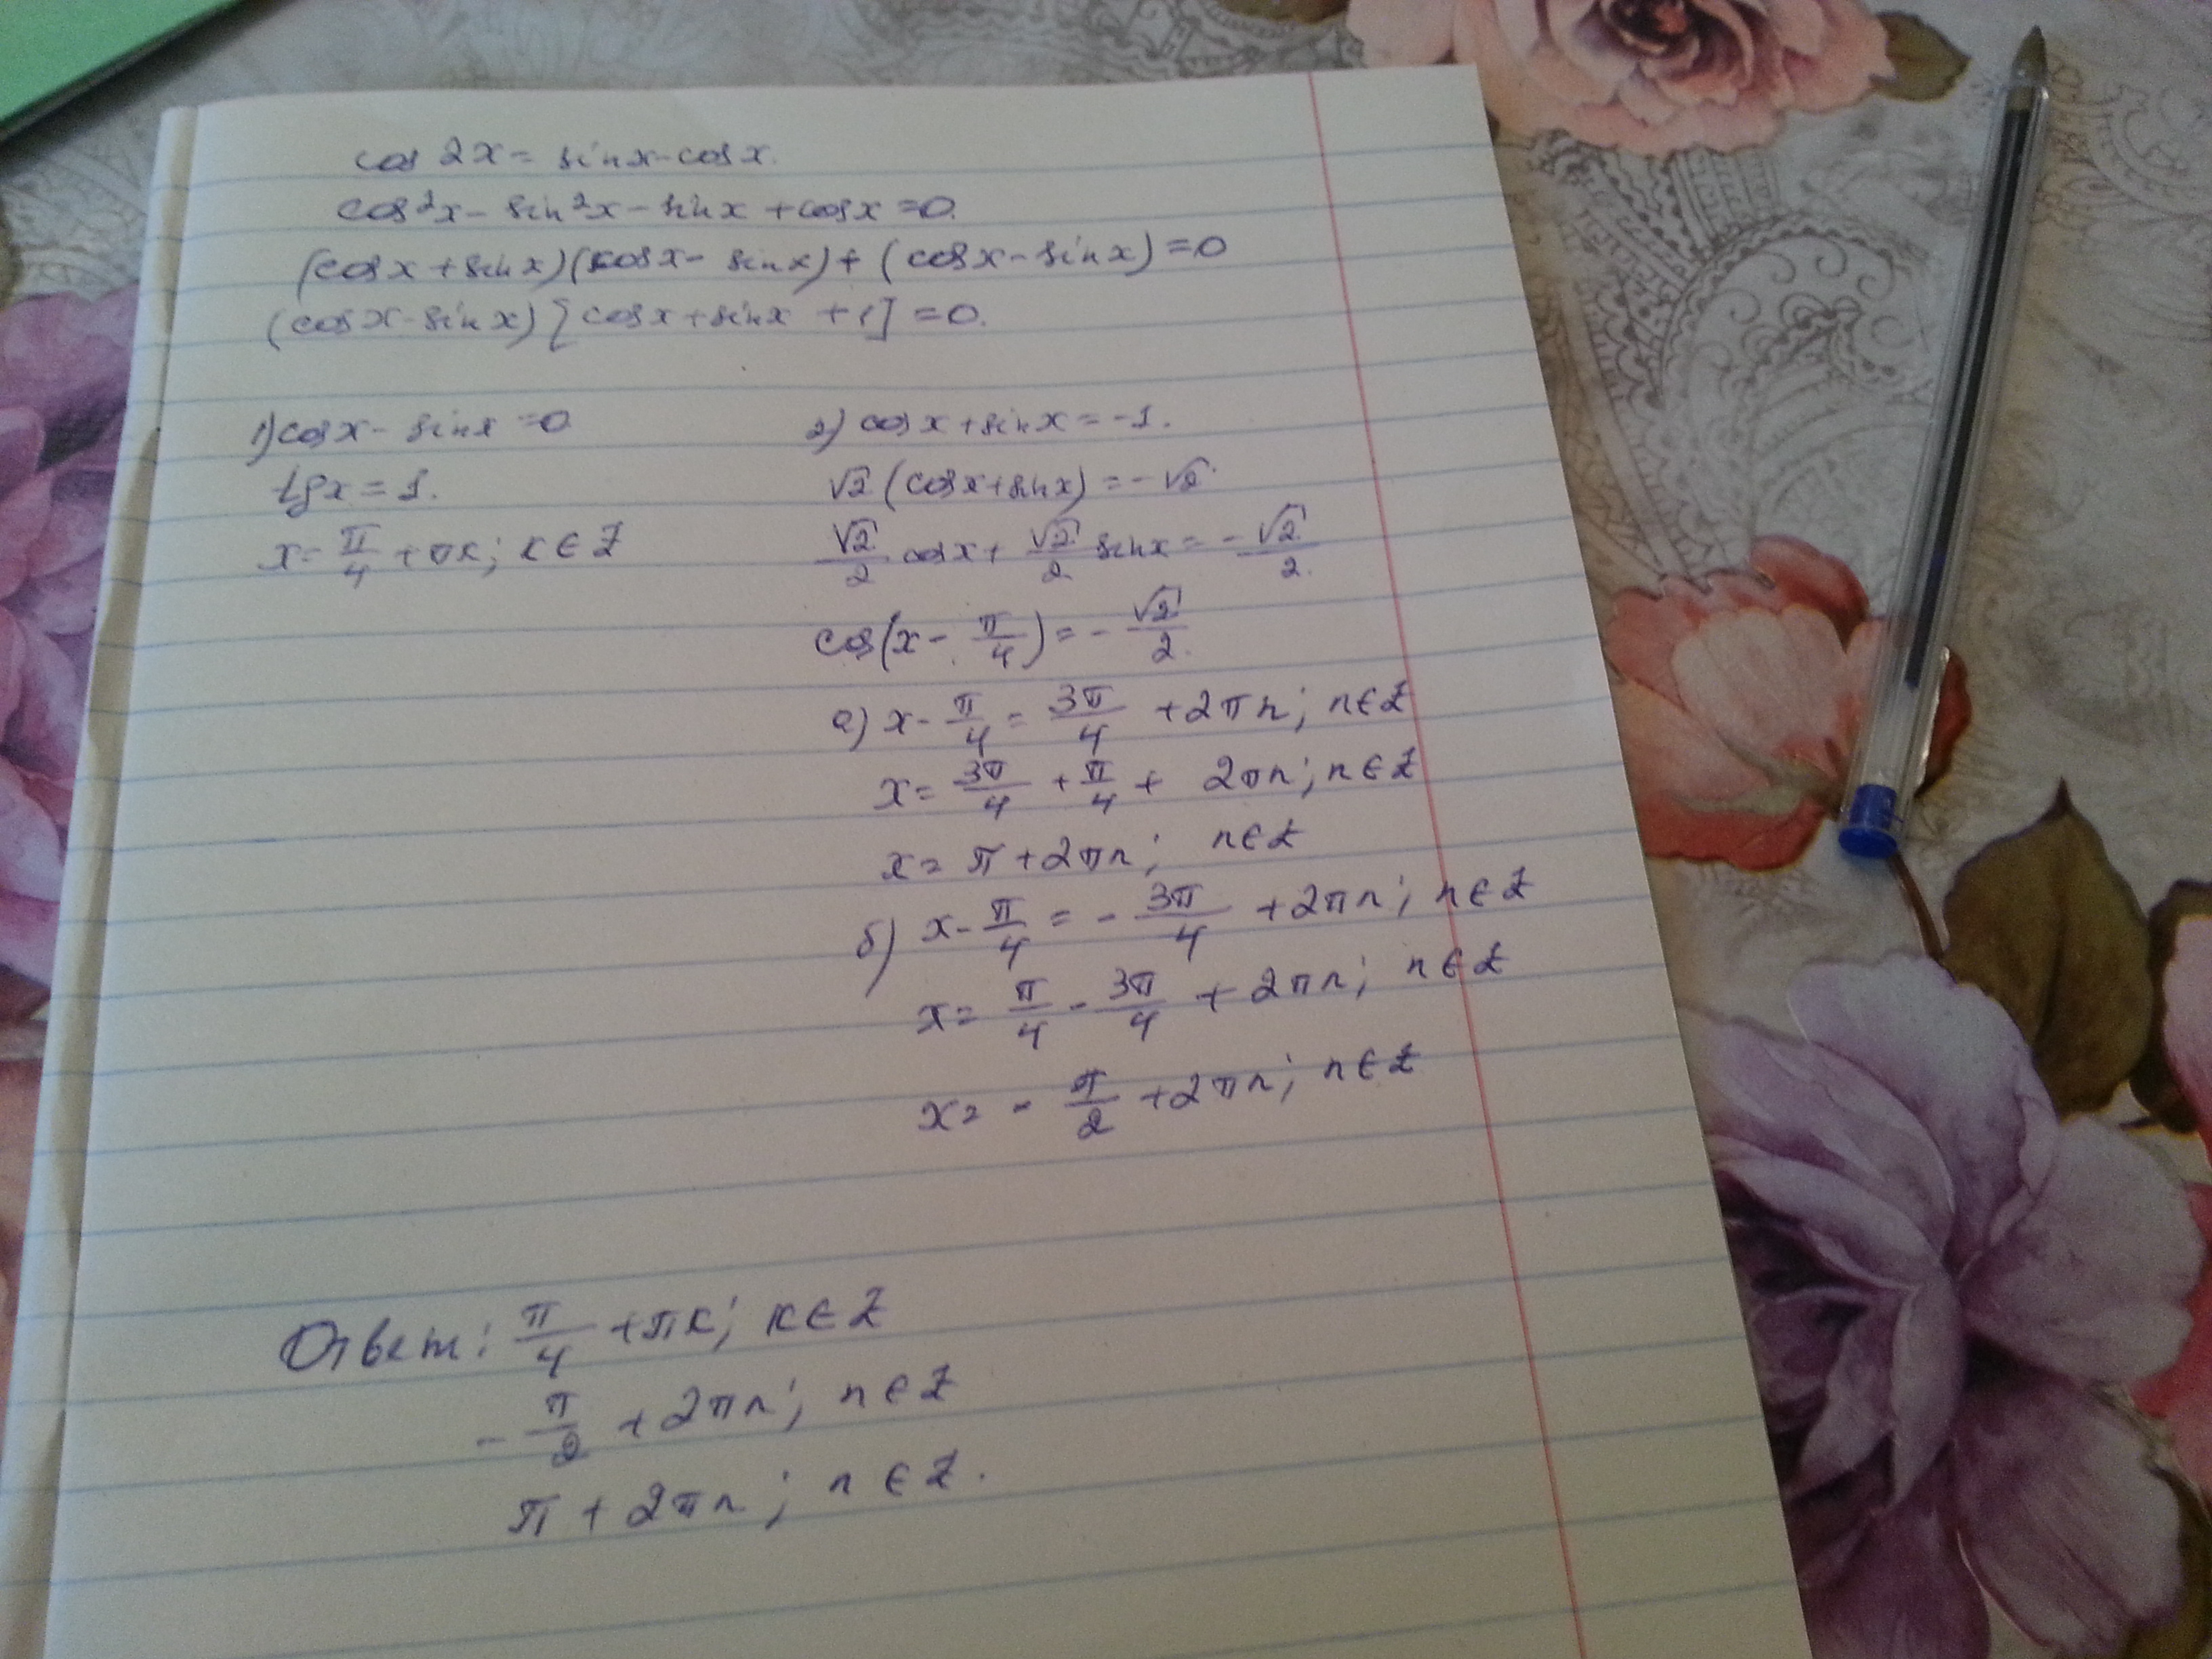 cos 2x = sinx - cosx.
cos²x - sin²x - sinx + cosx = 0.
(cosx + sinx)(cosx - sinx) + (cosx - sinx) = 0
(cosx - sinx)[cosx + sinx + 1] = 0.
1) cosx - sinx = 0
tgx = 1.
x = π/4 + πk; k ∈ Z
2) cosx + sinx = -1.
√2 (cosx + sinx) = -√2.
√2/2 cosx + √2/2 sinx = - √2/2.
cos(x - π/4) = - √2/2.
а) x - π/4 = 3π/4 + 2πn; n ∈ Z
x = 3π/4 + π/4 + 2πn; n ∈ Z
x = π + 2πn; n ∈ Z
б) x - π/4 = - 3π/4 + 2πn; n ∈ Z
x = π/4 - 3π/4 + 2πn; n ∈ Z
x = - π/2 + 2πn; n ∈ Z
Ответ: π/4 + πk; k ∈ Z
- π/2 + 2πn; n ∈ Z
π + 2πn; n ∈ Z.